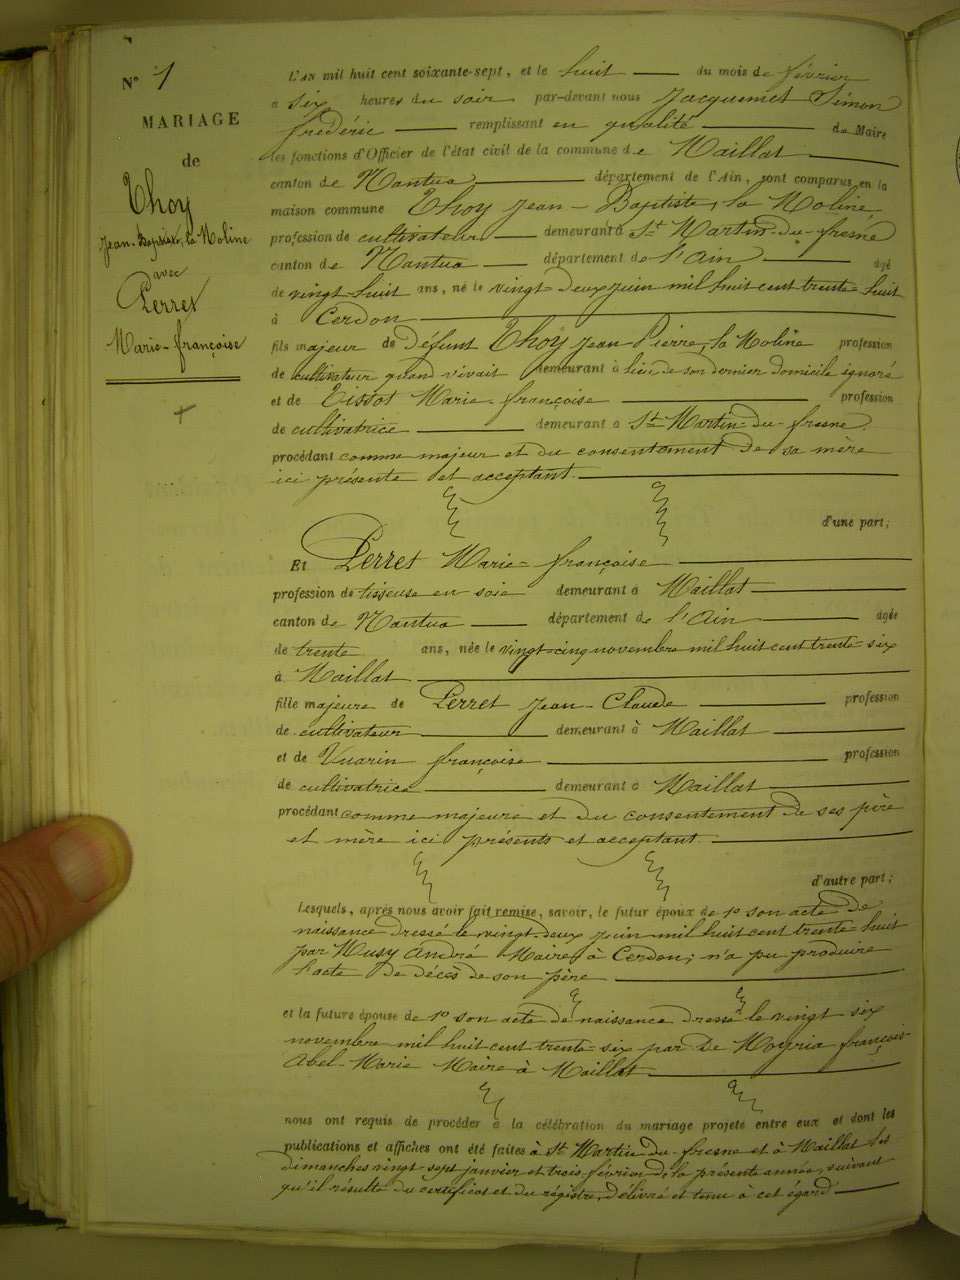 N° 1
MARIAGE
de
Thoy
Jean-Baptiste, la Moline
avec
Perret
Marie-françoise
L'AN mil huit cent soixante-sept, et le huit du mois de février
a six heures du soir par-devant nous Jacquemet Simon
frédéric remplissant en qualité de Maire
les fonctions d'Officier de l'état civil de la commune de Maillat
canton de Nantua département de l'Ain, sont comparus en la
maison commune Thoy Jean-Baptiste, la Moline
profession de cultivateur demeurant à St Martin-du-fresne
canton de Nantua département de l'Ain agé
de vingt-huit ans, né le vingt-deux juin mil huit cent trente-huit
à Cerdon
fils majeur de défunt Thoy Jean-Pierre, la Moline profession
de cultivateur quand vivait demeurant à lieu de son dernier domicile ignoré
et de Tissot Marie-françoise profession
de cultivatrice demeurant à St Martin-du-fresne
procédant comme majeur et du consentement de sa mère
ici présente et acceptant.
d'une part;
Et Perret Marie-françoise
profession de tisseuse en soie demeurant à Maillat
canton de Nantua département de l'Ain agée
de trente ans, née le vingt-cinq novembre mil huit cent trente-six
à Maillat
fille majeure de Perret Jean-Claude profession
de cultivateur demeurant à Maillat
et de Vuarin françoise profession
de cultivatrice demeurant à Maillat
procédant comme majeure et du consentement de ses père
et mère ici présents et acceptant.
d'autre part;
Lesquels, après nous avoir fait remise, savoir, le futur époux de 1° son acte de
naissance dressé le vingt-deux juin mil huit cent trente-huit
par Musy André Maire à Cerdon; n'a pu produire
l'acte de décès de son père
et la future épouse de 1° son acte de naissance dressé le vingt six
novembre mil huit cent trente-six par De Moyria françois-
Abel-Marie Maire à Maillat
nous ont requis de procéder à la célébration du mariage projeté entre eux et dont les
publications et affiches ont été faites à St Martin-du-fresne et à Maillat les
dimanches vingt sept janvier et trois février de la présente année, suivant
qu'il résulte du certificat et du régistre, délivré et tenu à cet égard